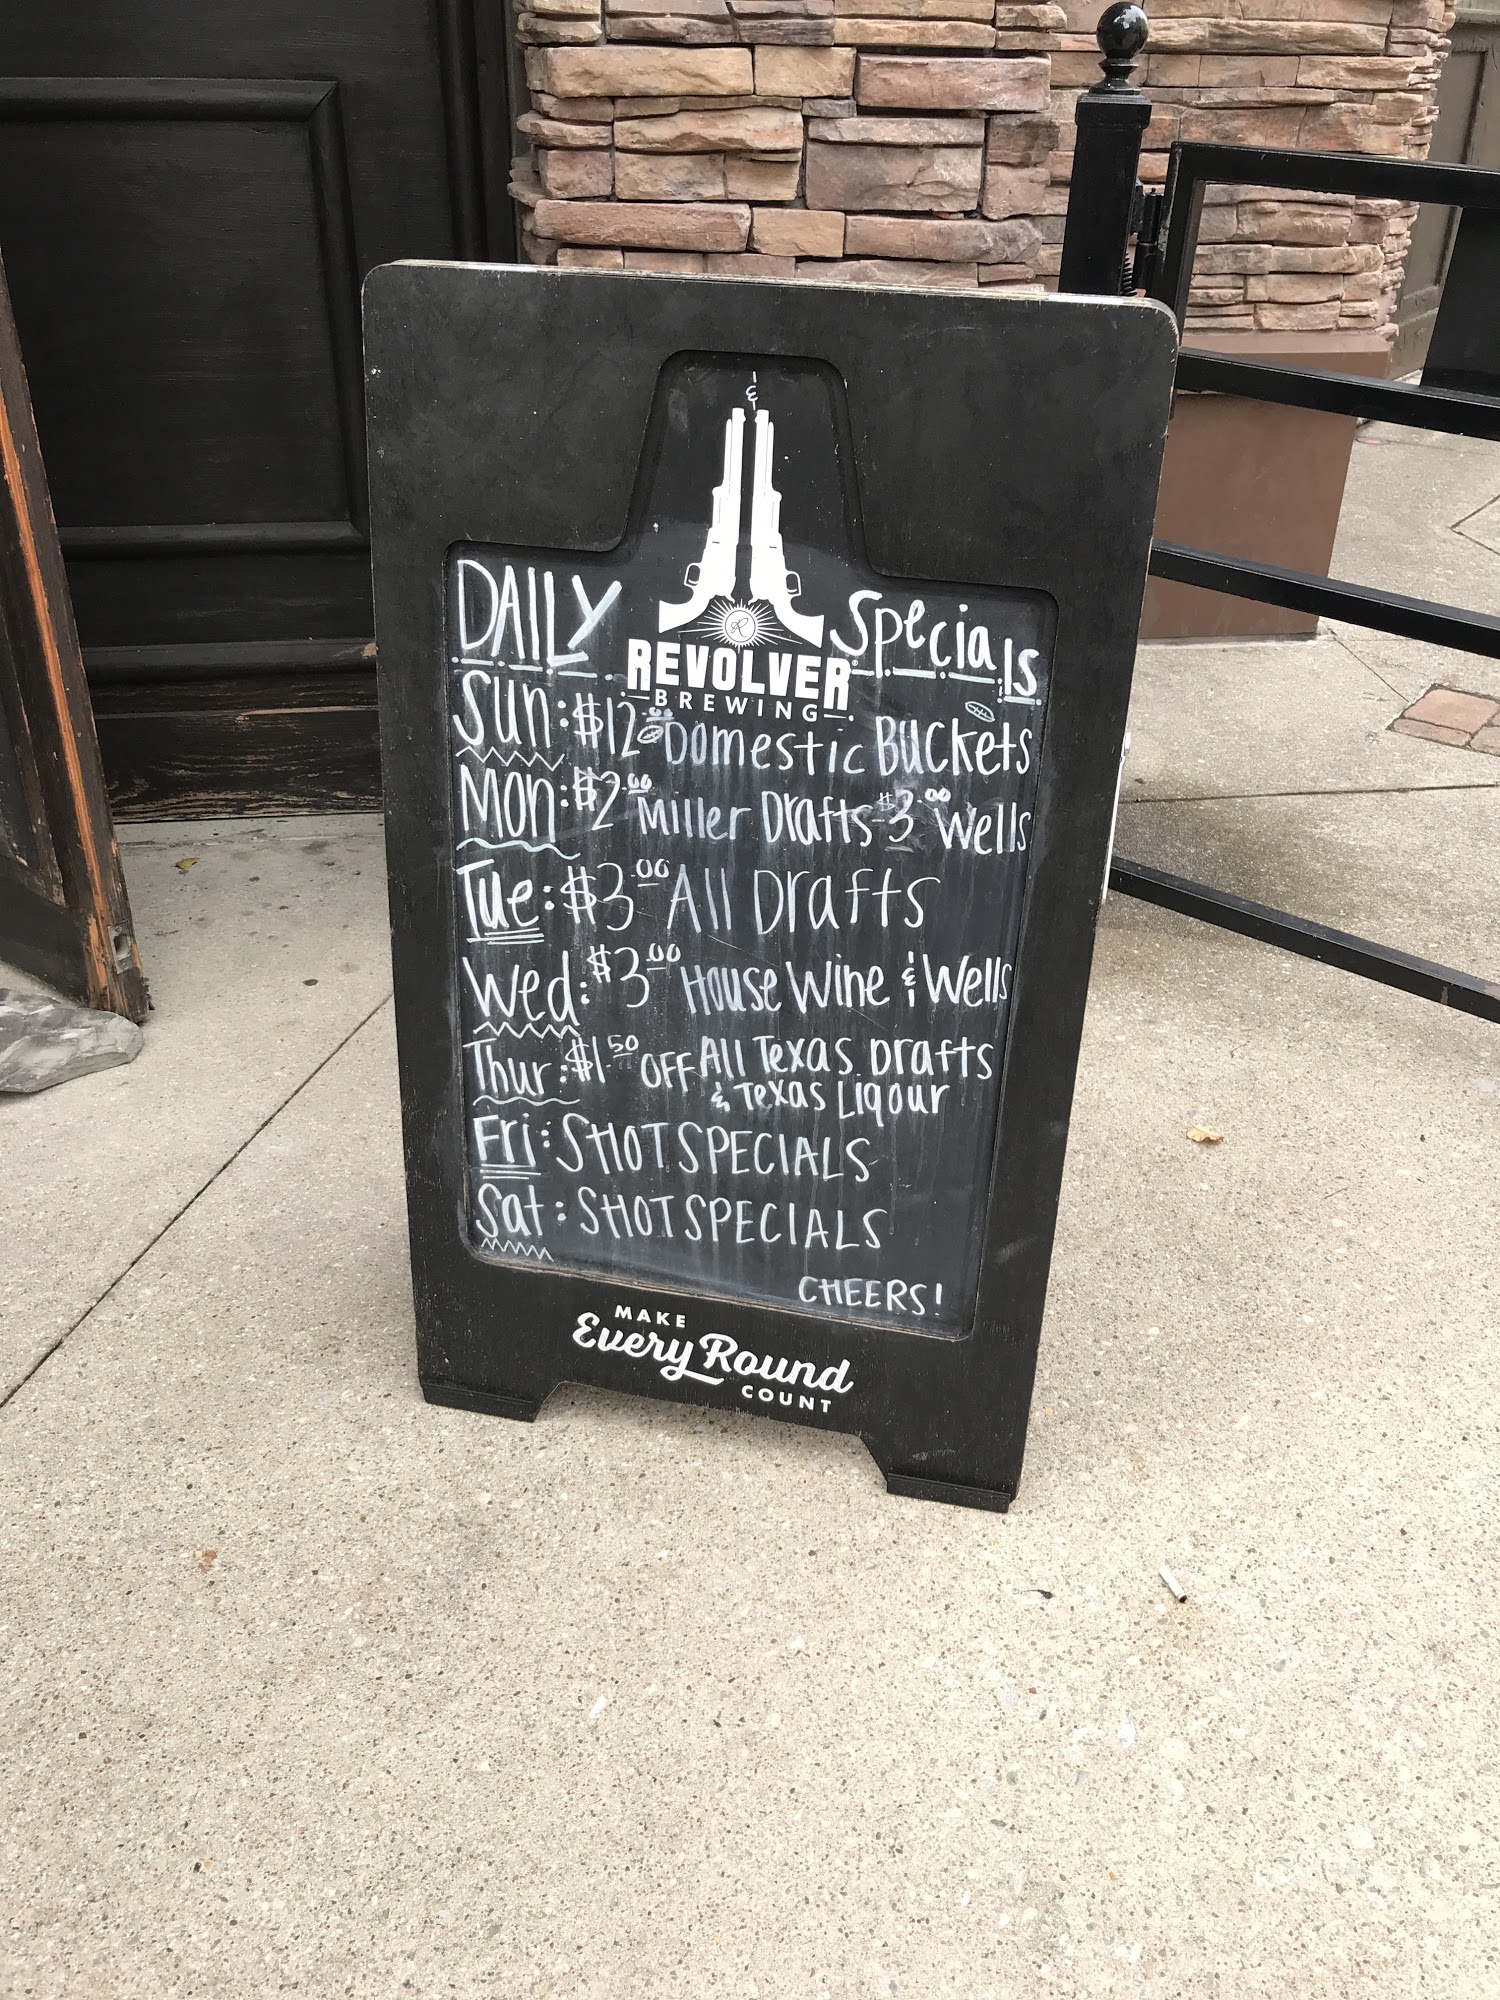 &
DAILY Specials
REVOLVER
BREWING
Sun: $12.00 Domestic Buckets
Mon: $2.00 Miller Drafts $3.00 Wells
Tue: $3.00 All Drafts
Wed: $3.00 House Wine & Wells
Thur: $1.50 OFF All Texas Drafts
& Texas Liqour
Fri: SHOT SPECIALS
Sat: SHOT SPECIALS
CHEERS!
MAKE
Every Round
COUNT